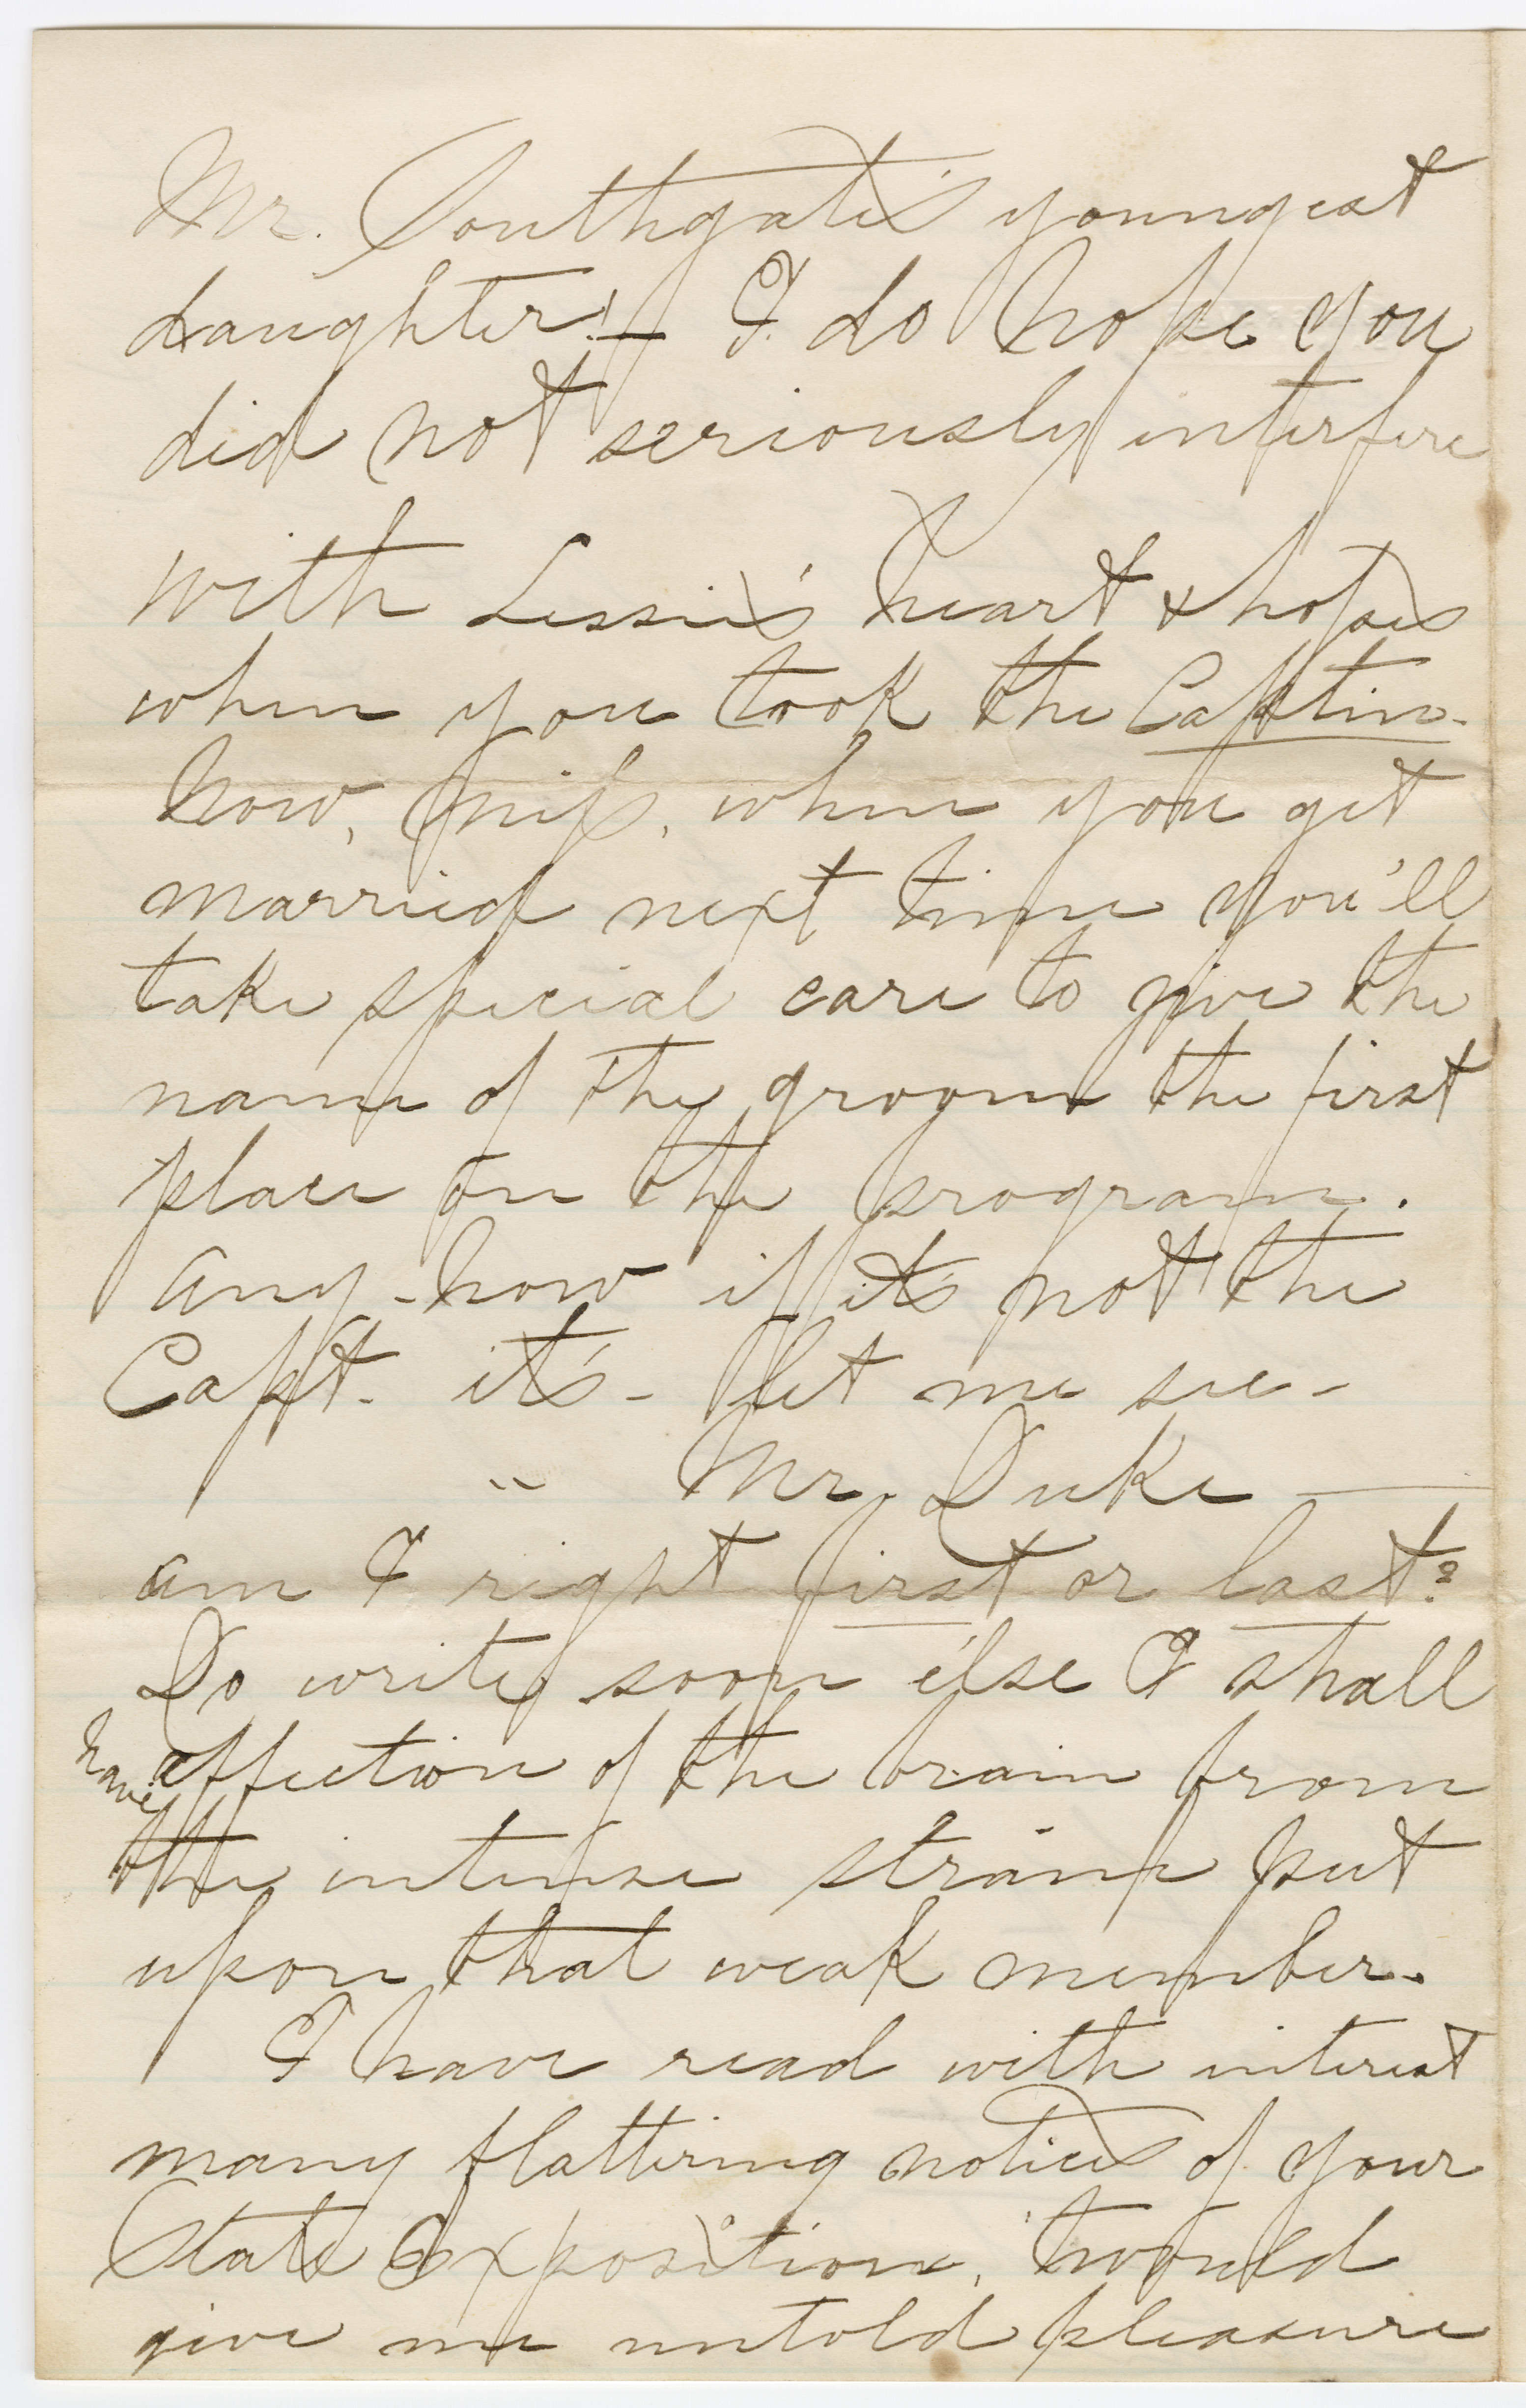 Mr. Southgate's youngest
daughter! — I do hope you
did not seriously interfere
with Lessie's heart & hopes
when you took the Captin.
Now, Miss, when you get
married next time you'll
take special care to give the
name of the groom the first
place on the program.
Any-how if it's not the
Capt. it's - let me see -
" Mr. Duke —
am I right first or last?
Do write soon else I shall
have affection of the brain from
the intense strain put
upon that weak member.
I have read with interest
many flattering notices of your
State Exposition, 'twould
give me untold pleasure